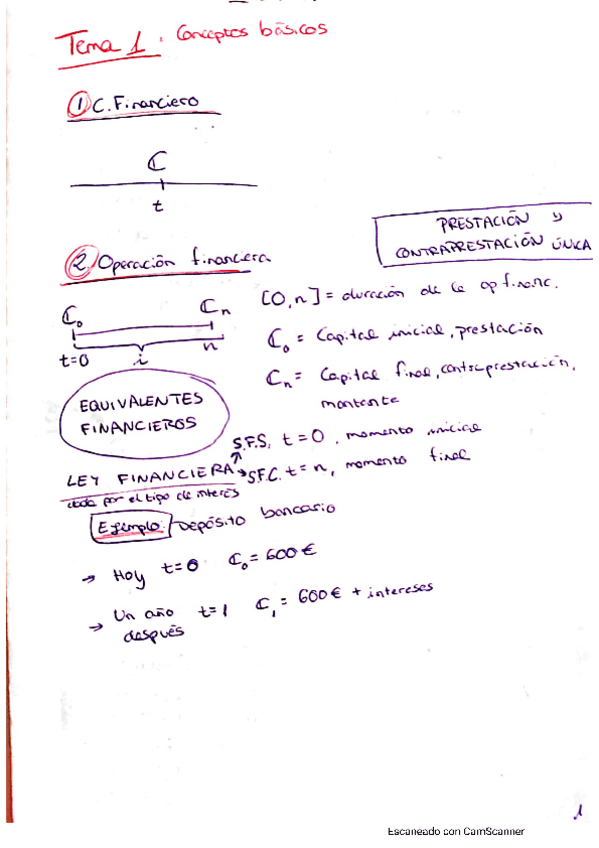 Tema 1. Conceptos básicos
① C. Financiero
C
t
PRESTACIÓN Y
CONTRAPRESTACIÓN ÚNICA
② Operación financiera
C₀ Cn
t=0 i n
[0,n] = duración de la op financ.
C₀ = Capital inicial, prestación
Cn = Capital final, contraprestación,
montante
EQUIVALENTES
FINANCIEROS
S.F.S, t=0, momento inicial
LEY FINANCIERA → S.F.C. t=n, momento final
dada por el tipo de interés
Ejemplo: Depósito bancario
→ Hoy t=0 C₀ = 600€
→ Un año t=1 C₁ = 600€ + intereses
después
1
Escaneado con CamScanner